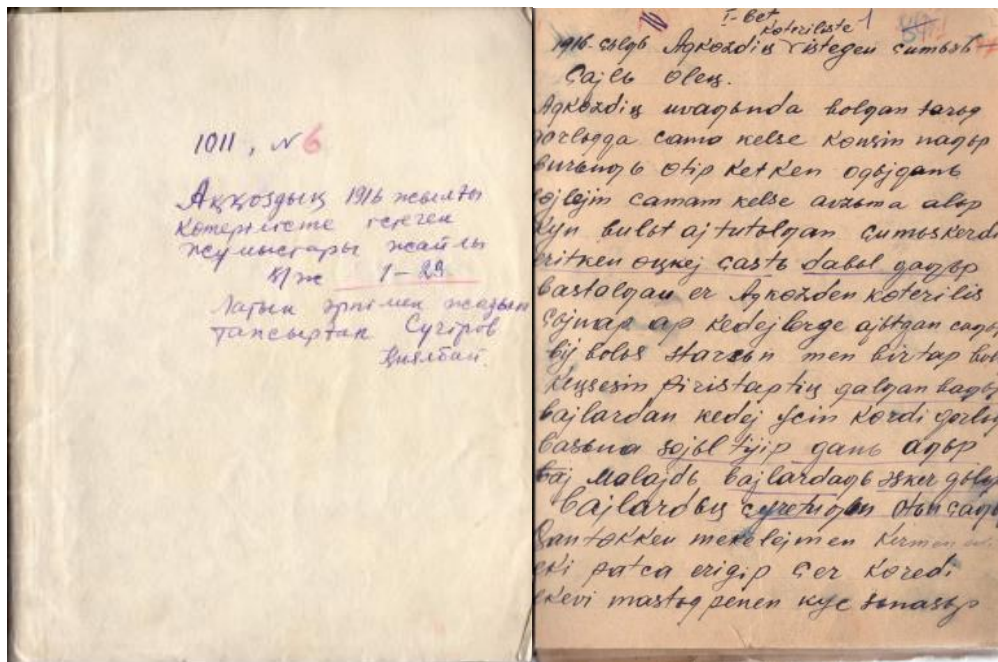 1011, № 6
Аққоздың 1916 жылғы
көтерілісте істеген
жұмыстары жайлы
қ/ж 1–29
Латын әрпімен жазып
тапсырған Сүгіров
Қиялбай
I-bet 1
koteriliste
1916-çьlqь Aqkozdiŋ istegen çumьsь
Çajlь oleŋ.
Aqkozdiŋ uvaqьnda bolqan
qorlьqqa cama kelse konsin naqьp
burьnqь otip ketken
sojlejin camam kelse avzьma alьp
kyn bulьt aj tutolqan çumьskerdi
eritken oŋkej çastь dabьl qaqьp
bastalqan er Aqkozden koterilis
çьjnap ap kedejlerge ajьtqan
bij bolьs starsьn men birtap
keŋsesin piristaptiŋ qalqan
bajlardan kedej ycin kordi
basьna sojьl tijip qanь aqьp
baj malajdь bajlardaqь əsker
bajlardьŋ syretuqьn otьn
Qan tokken mekelejmen
eki patca erigip çer koredi
ekevi mastьq penen kyc sьnasьp